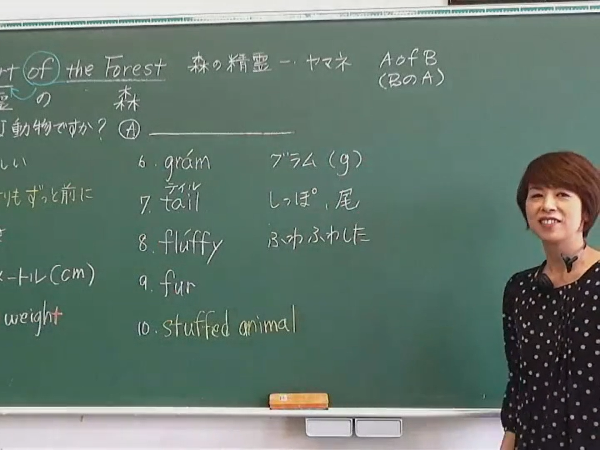 of the Forest 森の精霊 — ヤマネ AofB
霊の 森 (BのA)
動物ですか? Ⓐ
しい 6. grám グラム (g)
りもずっと前に 7. tail テイル しっぽ、尾
8. flúffy ふわふわした
メートル(cm) 9. fur
weight 10. stuffed animal